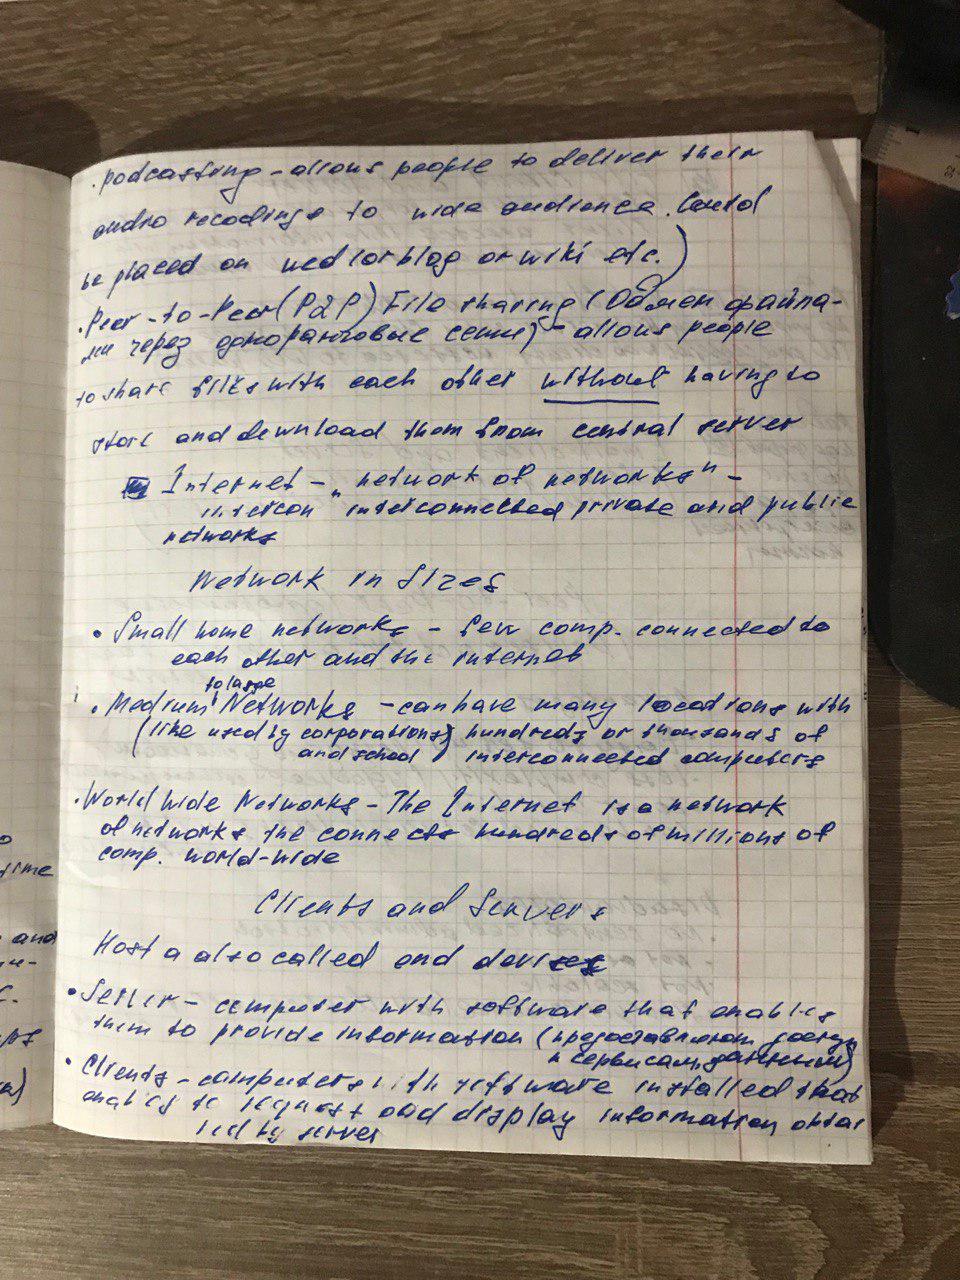 · podcasting – allows people to deliver their
audio recodings to wide audience. Could
be placed on or blog or wiki etc.)
· Peer-to-Peer (P2P) File sharing (Обмен файла-
ми через одноранговые сети) – allows people
to share files with each other without having to
store and download them from central server
Internet – „network of networks" –
intercon interconnected private and public
networks
Network in Sizes
· Small home networks – few comp. connected to
each other and the internet
to large
· Medium Networks – can have many locations with
(like used by corporations) hundreds or thousands of
and school interconnected computers
· World Wide Networks – The Internet is a network
of networks the connects hundreds of millions of
comp. world-wide
Clients and Servers
Host a also called end devices
· Server – computer with software that enables
them to provide information (предоставляют доступ
к сервисам, данным)
· Clients – computers with software installed that
enables to request and display information obtai
ned by server
time
and